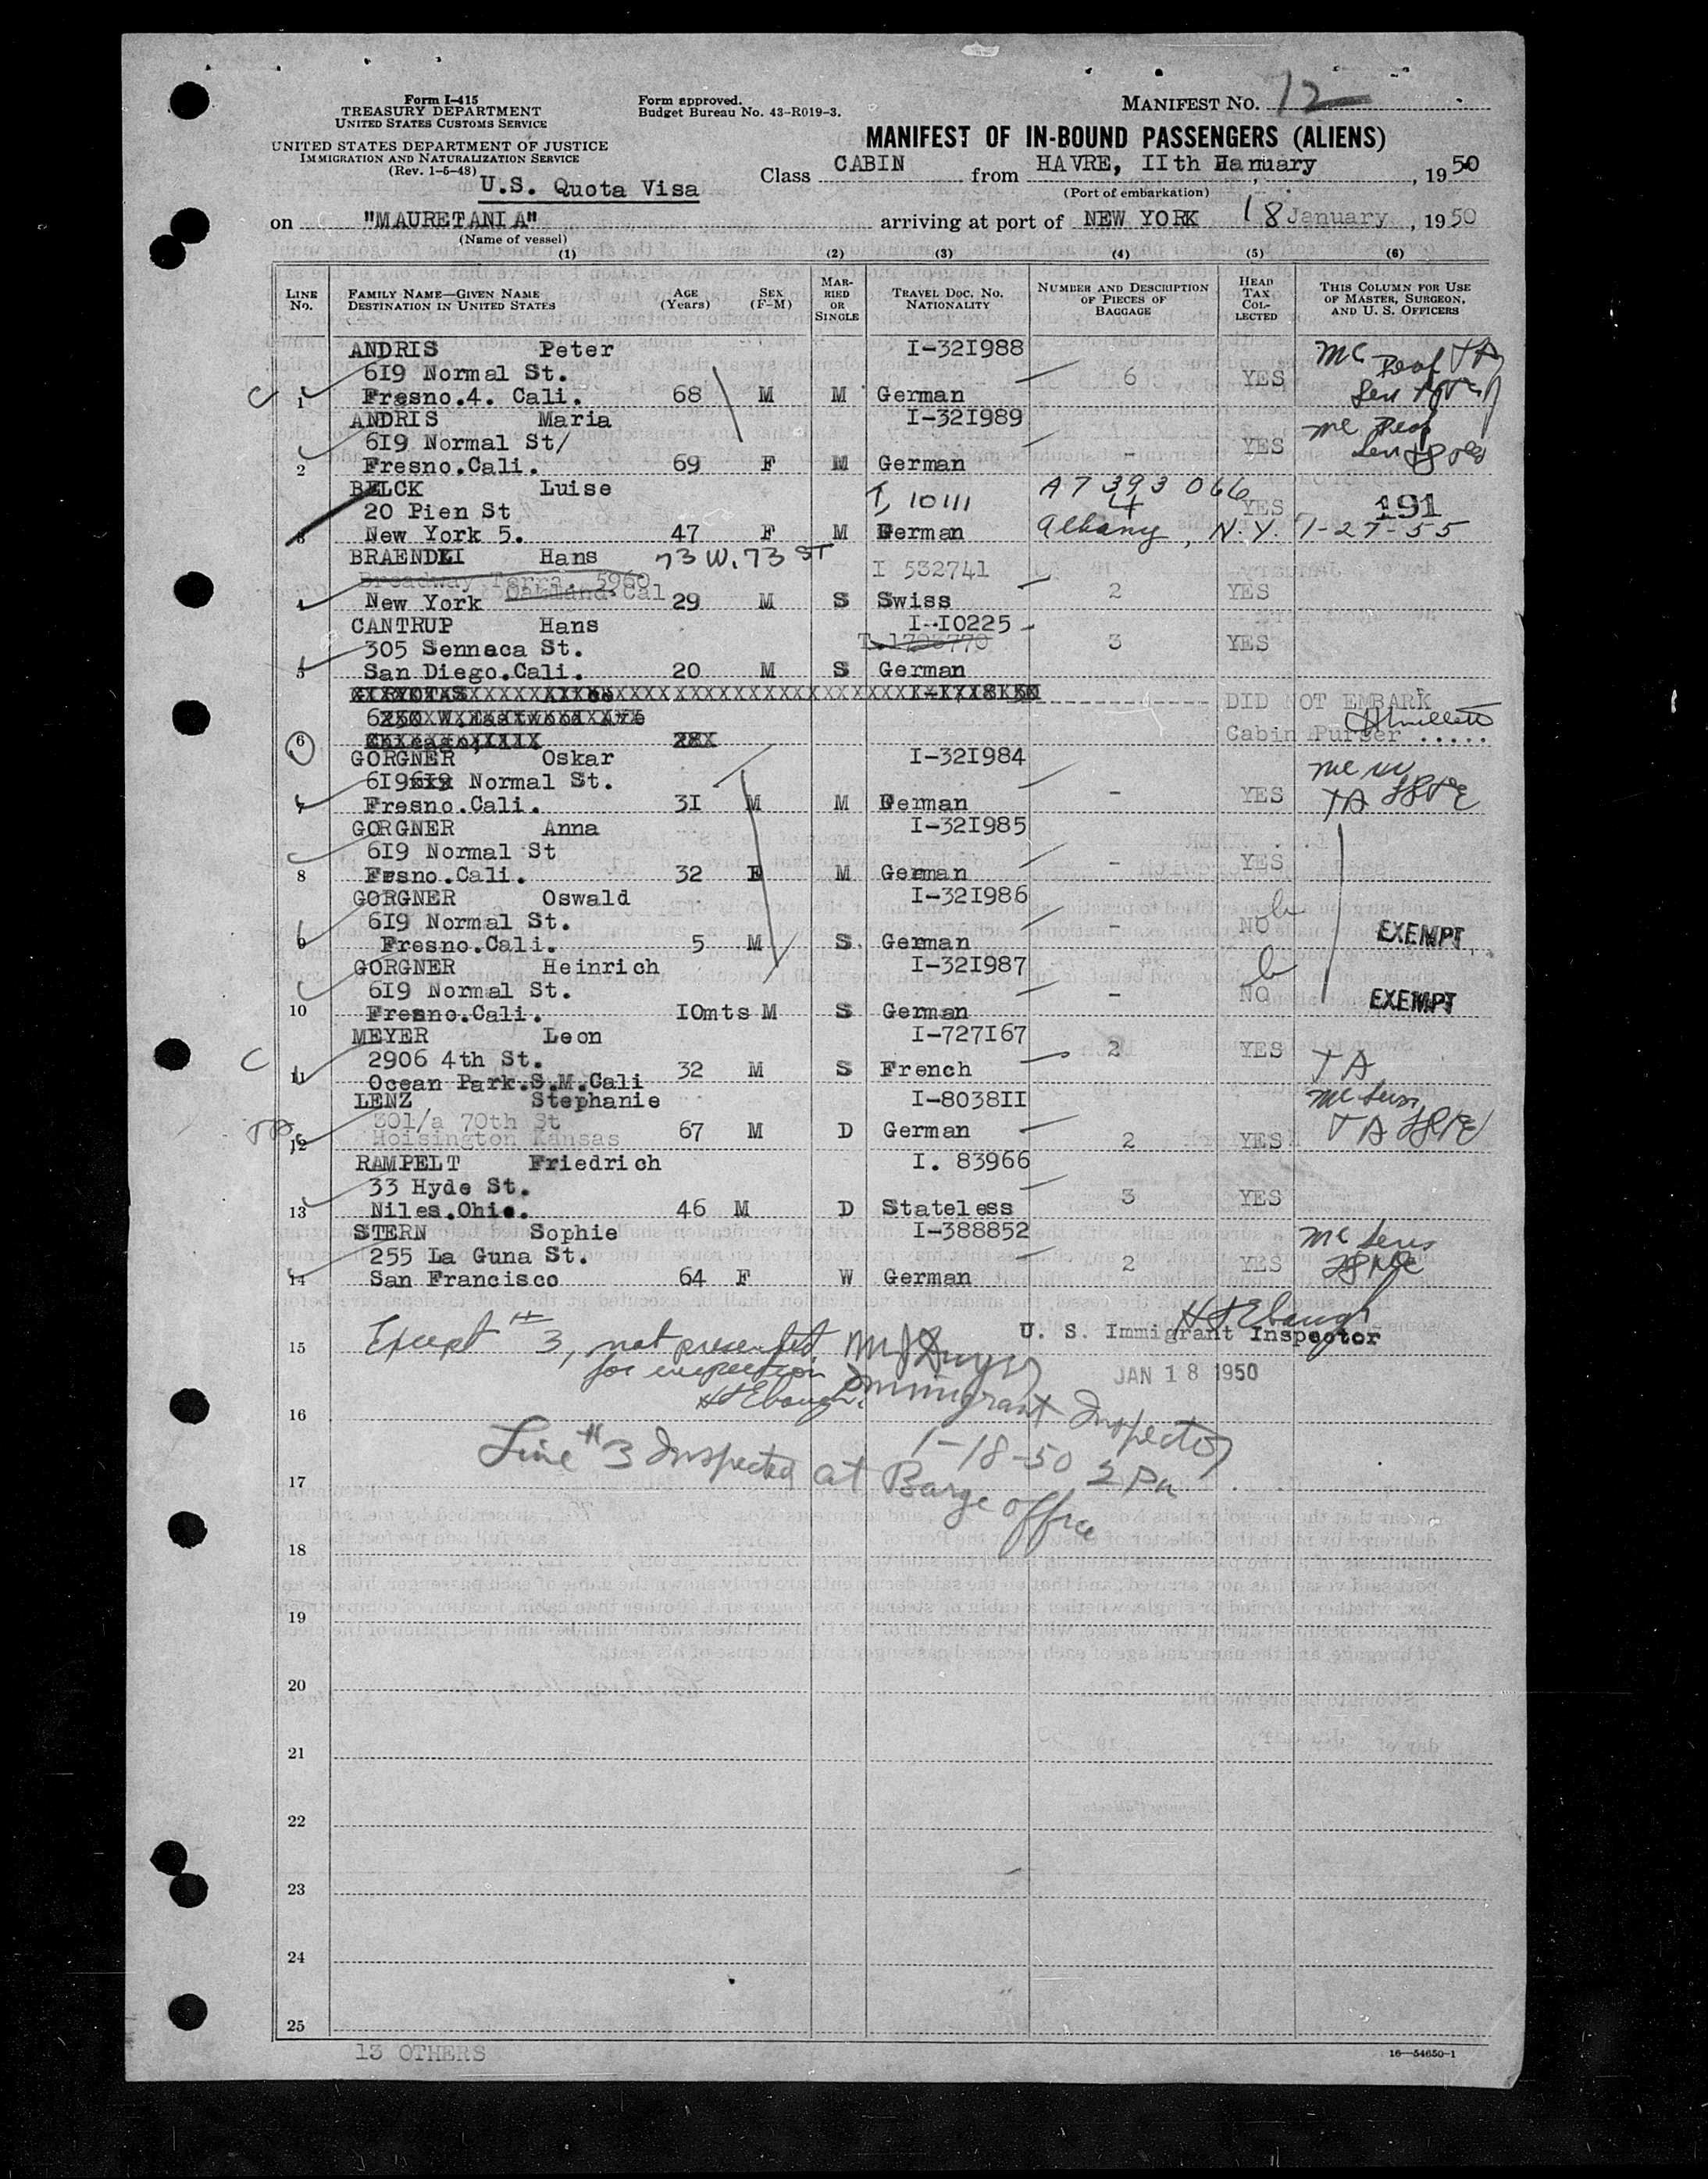 Form I-415
TREASURY DEPARTMENT
UNITED STATES CUSTOMS SERVICE
UNITED STATES DEPARTMENT OF JUSTICE
IMMIGRATION AND NATURALIZATION SERVICE
(Rev. 1-5-48)
U.S. Quota Visa
Form approved.
Budget Bureau No. 43-R019-3.
MANIFEST NO. 12
MANIFEST OF IN-BOUND PASSENGERS (ALIENS)
Class CABIN from HAVRE, IIth Januory, 1950
(Port of embarkation)
on "MAURETANIA" arriving at port of NEW YORK 18 January, 1950
(Name of vessel)
(1) (2) (3) (4) (5) (6)
LINE No. FAMILY NAME—GIVEN NAME DESTINATION IN UNITED STATES AGE (Years) SEX (F-M) MARRIED OR SINGLE TRAVEL DOC. NO. NATIONALITY NUMBER AND DESCRIPTION OF PIECES OF BAGGAGE HEAD TAX COLLECTED THIS COLUMN FOR USE OF MASTER, SURGEON, AND U. S. OFFICERS
ANDRIS Peter I-32I988 Mc Deaf TA
619 Normal St. 6 YES
1 Fresno.4. Cali. 68 M M German
ANDRIS Maria I-32I989 Mc Deaf
6I9 Normal St/ YES
2 Fresno.Cali. 69 F M German
BELCK Luise T, 10111 A7 393 066
20 Pien St 4 YES 191
3 New York 5. 47 F M German Albany, N.Y. 1-27-55
BRAENDLI Hans 73 W. 73 ST
Broadway Terra. 5960 I 532741 2 YES
4 New York Oakland Cal 29 M S Swiss
CANTRUP Hans I-I0225
305 Senneca St. 3 YES
5 San Diego.Cali. 20 M S German
DID NOT EMBARK
6 Cabin Purser .....
GORGNER Oskar I-32I984
6I9 Normal St. - YES
7 Fresno.Cali. 3I M M German TA
GORGNER Anna I-32I985
6I9 Normal St - YES
8 Fresno.Cali. 32 F M German
GORGNER Oswald I-32I986
6I9 Normal St. - NO EXEMPT
9 Fresno.Cali. 5 M S German
GORGNER Heinrich I-32I987
6I9 Normal St. - NO EXEMPT
10 Fresno.Cali. IOmts M S German
MEYER Leon I-727I67
2906 4th St. 2 YES TA
11 Ocean Park.S.M.Cali 32 M S French
LENZ Stephanie I-8038II
301/a 70th St
12 Hoisington Kansas 67 M D German 2 YES TA
RAMPELT Friedrich I. 83966
33 Hyde St. 3 YES
13 Niles.Ohio. 46 M D Stateless
STERN Sophie I-388852 Mc Sens
255 La Guna St. 2 YES
14 San Francisco 64 F W German
H J Ebaugh
U. S. Immigrant Inspector
JAN 18 1950
15 Except # 3, not presented
for inspection
H J Ebaugh.
Immigrant Inspector
16
1-18-50 2 Pm
Line # 3 Inspected at Barge office
17
18
19
20
21
22
23
24
25
13 OTHERS
16—54650-1